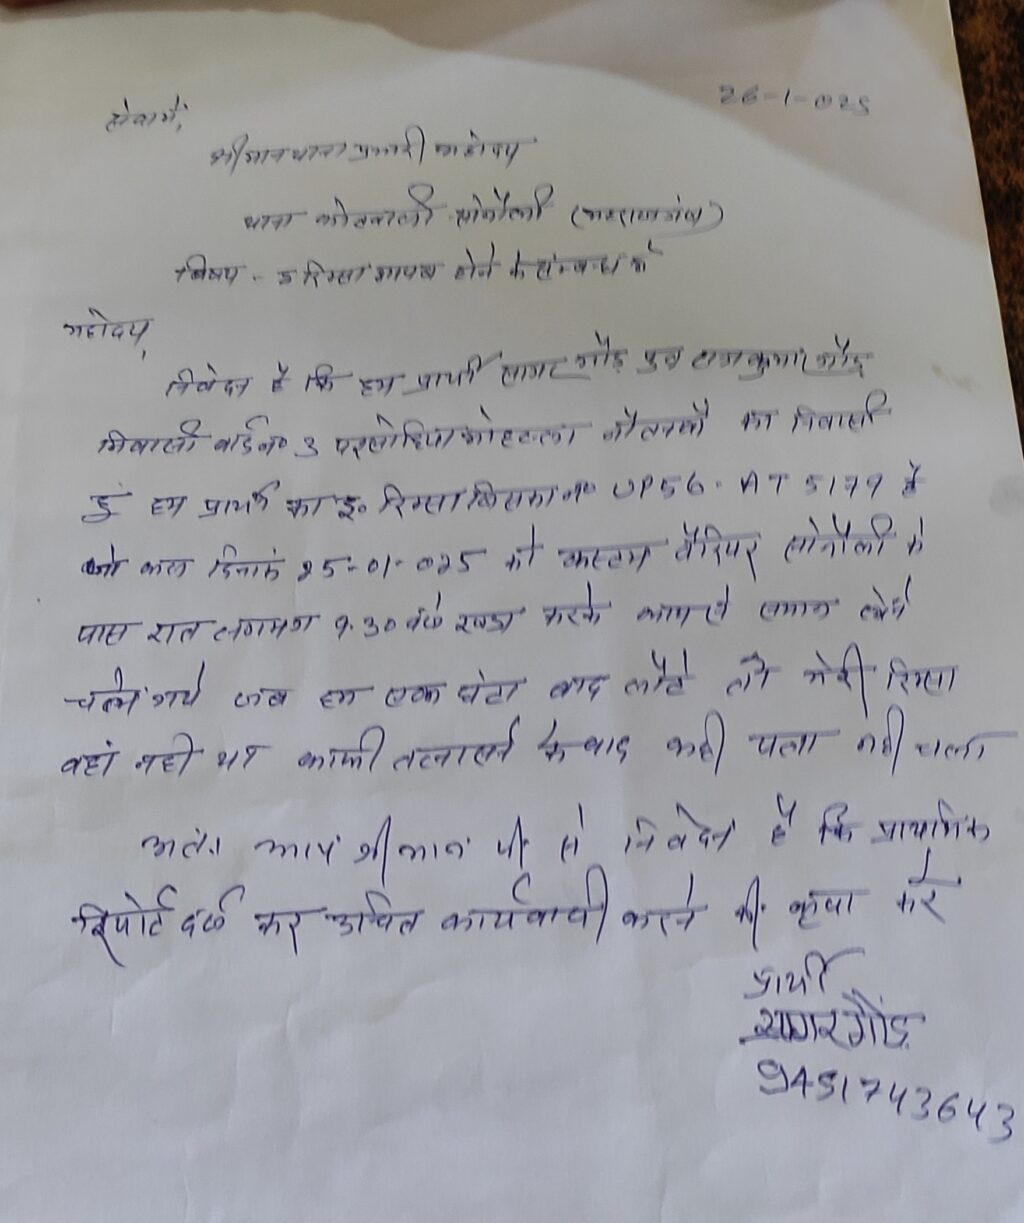 26-1-025
सेवामें,
श्रीमान थाना प्रभारी महोदय
थाना कोतवाली सोनौली (महराजगंज)
विषय - इ रिक्सा गायब होने के संम्बन्ध में
महोदय,
निवेदन है कि हम प्रार्थी सागर गौड़ पुत्र राजकुमार गौड़
निवासी वार्ड न० 3 परसोहिया मोहल्ला नौतनवाँ का निवासी
हुं हम प्रार्थी का इ० रिक्सा जिसका न० UP56. AT 5179 है
जो कल दिनांक 25-01-025 को कस्टम बैरियर सोनौली के
पास रात लगभग 9.30 बजे खड़ा करके समान लेने
चले गये जब हम एक घंटा बाद लौटे तो मेरी रिक्सा
वहां नही था काफी तलासने के बाद कही पता नही चला
अतः आप श्रीमान जी से निवेदन है कि प्राथमिक
रिपोर्ट दर्ज कर उचित कार्यवायी करने की कृपा करे
प्रार्थी
सागर गौड़
9451743643